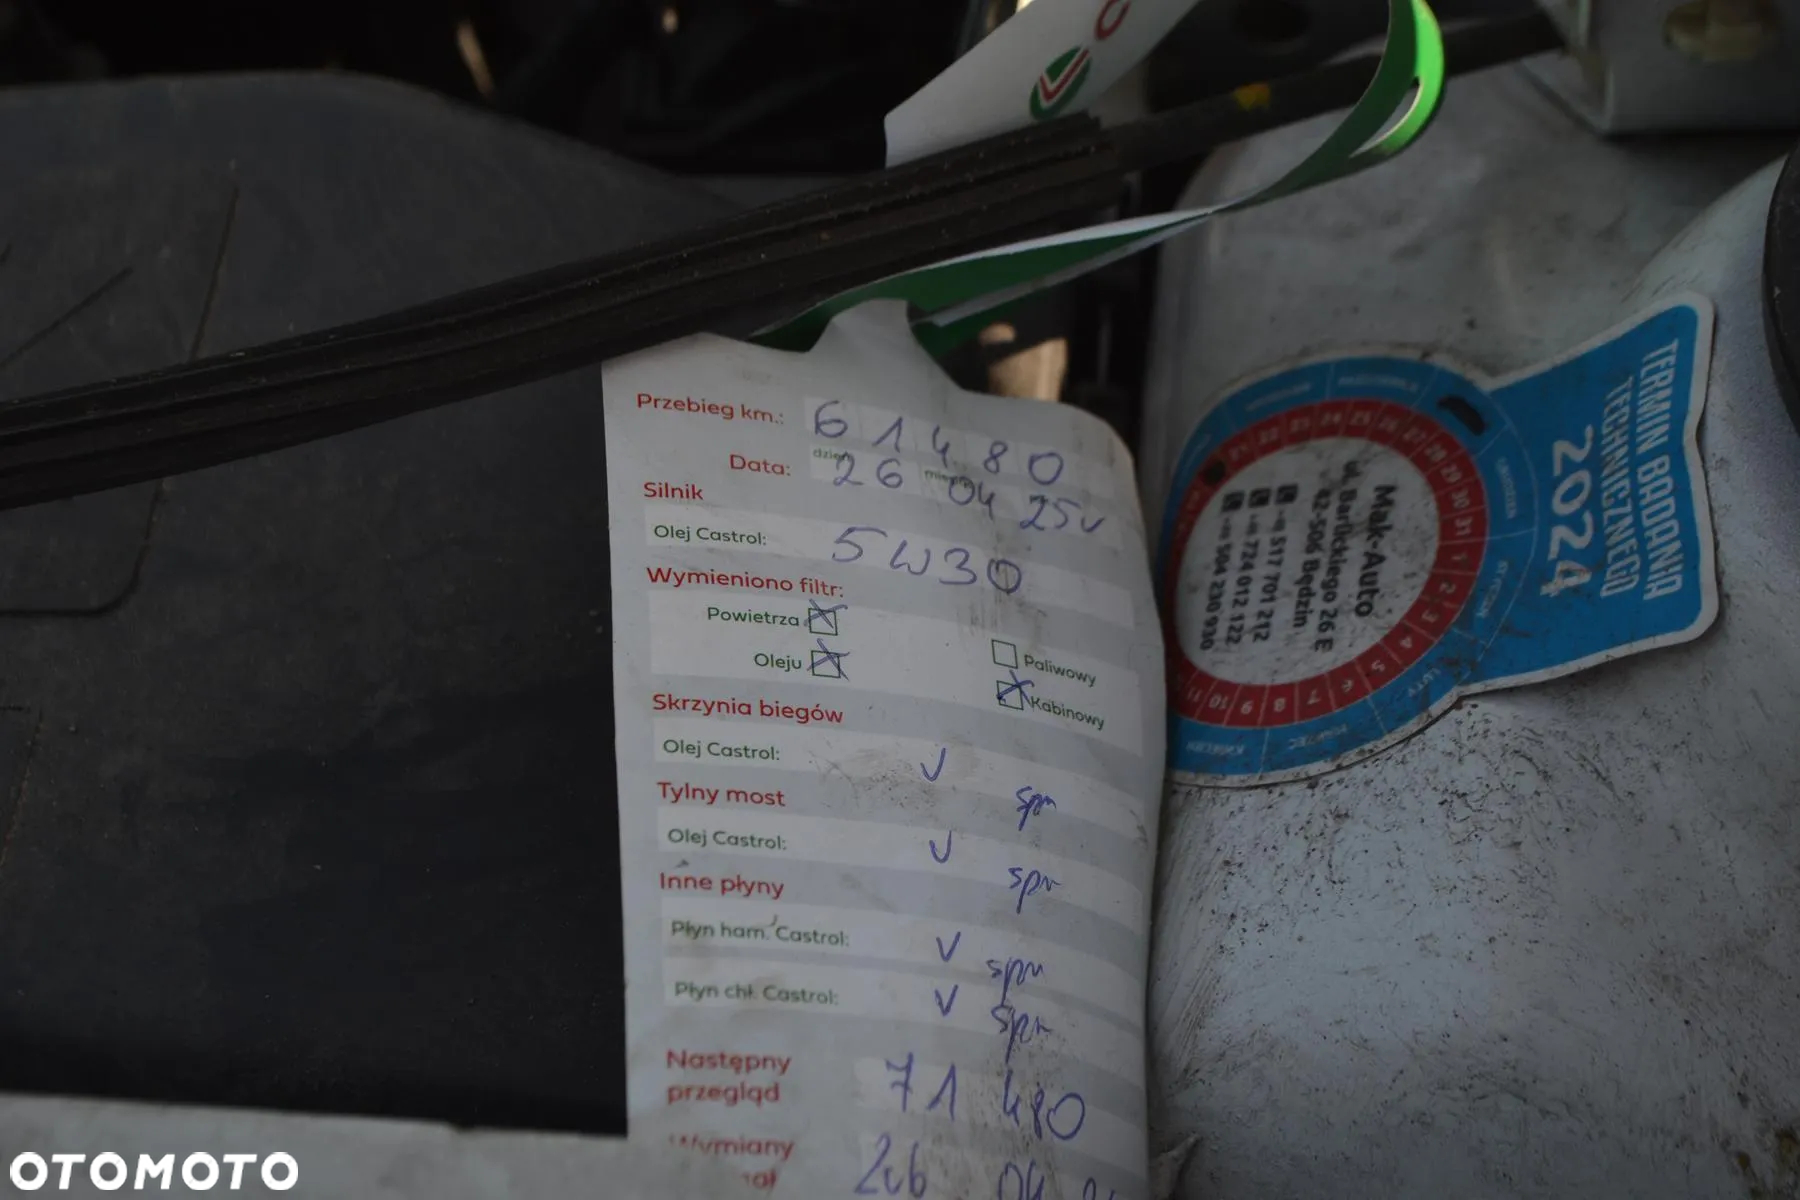 Przebieg km.: 61480
Data: dzień 26 04 25r
Silnik
Olej Castrol: 5W30
Wymieniono filtr:
Powietrza
Oleju
Paliwowy
Kabinowy
Skrzynia biegów
Olej Castrol: V spr
Tylny most
Olej Castrol: V spr
Inne płyny
Płyn ham. Castrol: V spr
Płyn chł. Castrol: V spr
Następny
przegląd 71 480
Wymiany
26 04
TERMIN BADANIA
TECHNICZNEGO
2024
Mak-Auto
ul. Barlickiego 26 E
42-506 Będzin
517 701 212
724 012 122
504 230 930
22 23 24 25 26 27 28 29 30 31 1 2 3 4 5 6 7 8 9 10 11
STYCZEŃ
LUTY
MARZEC
KWIECIEŃ
OTOMOTO